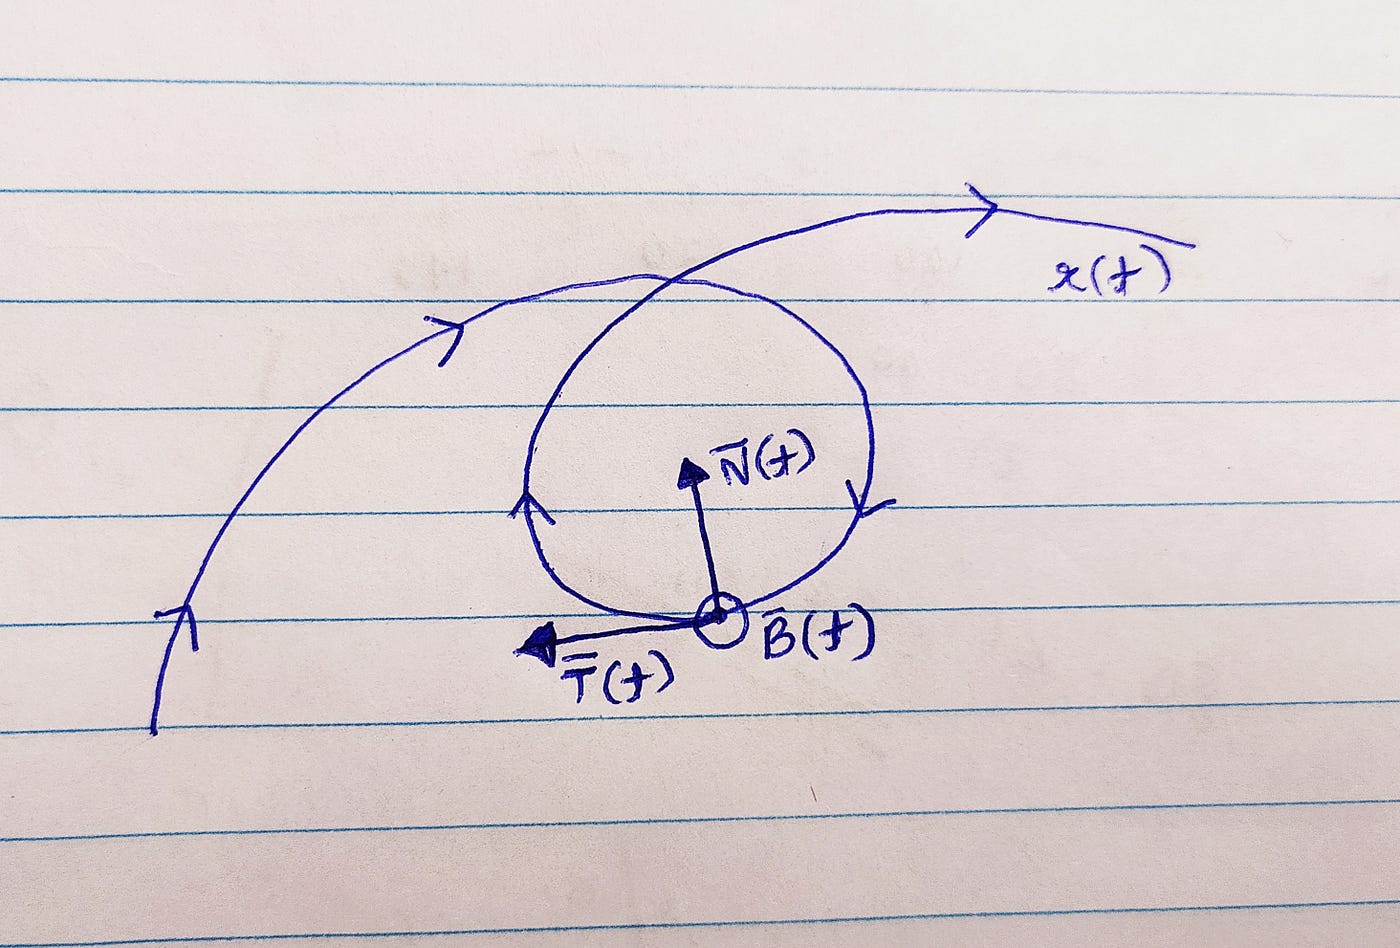 r(t)
N̄(t)
B̄(t)
T̄(t)